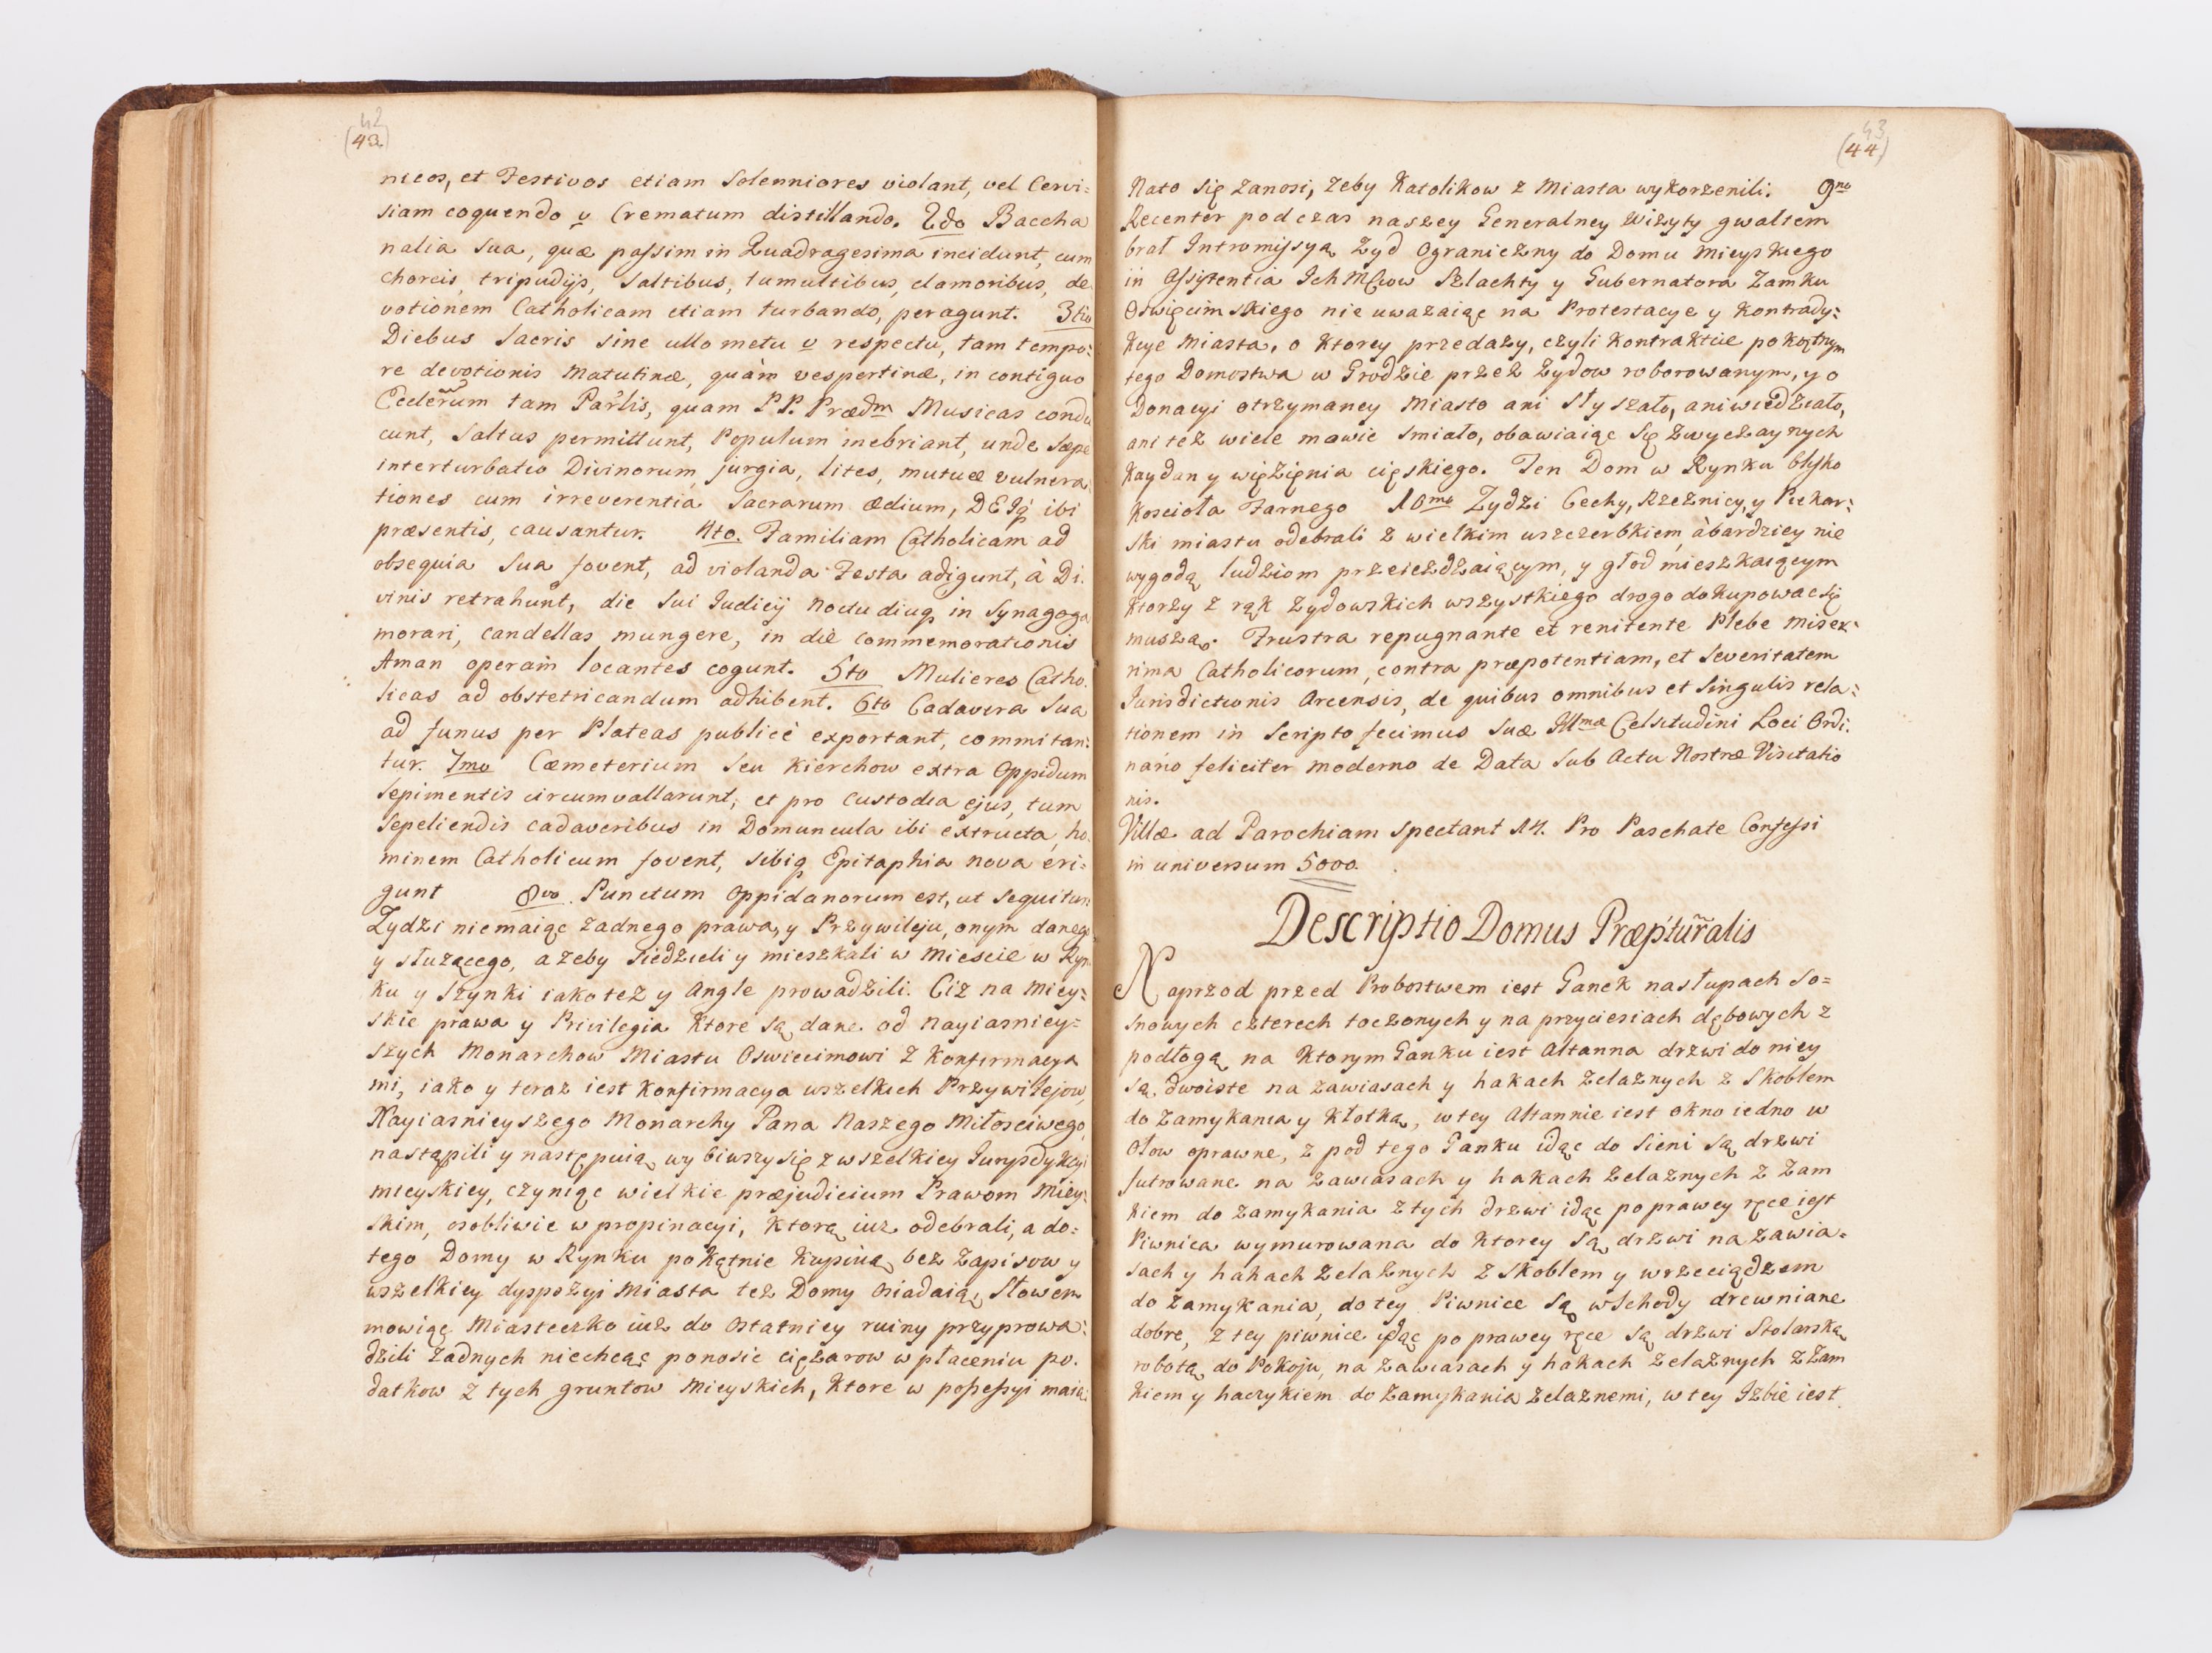 42
(43)
nicos, et Festivos etiam Solenniores violant, vel Cervi:
siam coquendo v Crematum distillando. 2do Baccha
nalia sua, quæ passim in Quadragesima incidunt, cum
choreis, tripudijs, saltibus, tumultibus, clamoribus, de
votionem Catholicam etiam turbando, peragunt. 3tio
Diebus Sacris sine ullo metu v respectu, tam tempo:
re devotionis Matutinæ, quàm vespertinæ, in contiguo
Ecclerum tam Parlis, quam P.P. Prædm Musicas condu
cunt, Saltus permittunt, Populum inebriant, unde sæpe
interturbatio Divinorum, jurgia, lites, mutuæ vulnera
tiones cum irreverentia Sacrarum ædium, DEIq ibi
præsentis, causantur. 4to. Familiam Catholicam ad
obsequia sua fovent, ad violanda Festa adigunt, à Di.
vinis retrahunt, die sui Iudicij noctu diuq in Synagoga
morari, candellas mungere, in die commemorationis
Aman operam locantes cogunt. 5to Mulieres Catho.
licas ad obstetricandum adhibent. 6to Cadavera sua
ad funus per Plateas publicè exportant, commitan:
tur. 7mo Cæmeterium seu Kierchow extra Oppidum
sepimentis circumvallarunt, et pro custodia ejus, tum
sepeliendis cadaveribus in Domuncula ibi extructa, ho.
minem Catholicum fovent, sibiq Epitaphia nova eri:
gunt 8vo. Punctum Oppidanorum est, ut sequitur:
Zydzi niemaiąc zadnego prawa, y Przywileju, onym danego
y służącego, azeby siedzieli y mieszkali w Miescie w Ryn
ku y szynki iako tez y Angle prowadzili. Ciz na Miey:
skie prawa y Privilegia ktore są dane od Nayiasniey=
szych Monarchow Miastu Oswiecimowi z Konfirmacya
mi, iako y teraz iest Konfirmacya wszelkich Przywilejow,
Nayiasnieyszego Monarchy Pana Naszego Miłosciwego,
nastąpili y następuią wybiwszy się z wszelkiey Jurysdykcyi
mieyskiey, czyniąc wielkie præjudicium Prawom Miey:
skim, osobliwie w propinacyi, ktorą iuz odebrali, a do=
tego Domy w Rynku pokętnie kupiuą bez Zapisow y
wszelkiey dyspozyi Miasta tez Domy osiadaią, Słowem
mowiąc Miasteczko iuz do ostatniey ruiny przyprowa:
dzili zadnych niechcąc ponosic cięzarow w płaceniu po.
datkow z tych gruntow Mieyskich, ktore w possessyi maią
43
(44)
Nato się zanosi, zeby Katolikow z Miasta wykorzenili. 9no
Recenter podczas naszey Generalney Wizyty gwałtem
brał Intromissyą Zyd Ograniczny do Domu Mieyskiego
in Assistentia Ich MCiow Szlachty y Gubernatora Zamku
Oswięcimskiego nie uwazaiąc na Protestacye y Kontrady:
kcye Miasta, o ktorey przedazy, czyli kontrakcie pokątnym
tego Domostwa w Grodzie przez Zydow roborowanym, y o
Donacyi otrzymaney Miasto ani słyszało, ani wiedziało,
ani tez wiele mowic smiało, obawiaiąc się zwyczaynych
kaydan y więzięnia cięskiego. Ten Dom w Rynku blisko
Koscioła Farnego 10mo Zydzi Cechy, Rzeznicy, y Piekar:
ski miastu odebrali z wielkim uszczerbkiem, à bardziey nie
wygodą ludziom przeiezdzaiącym, y głod mieszkaiącym
ktorzy z rąk zydowskich wszystkiego drogo dokupowac się
muszą. Frustra repugnante et renitente Plebe miser:
rima Catholicorum, contra præpotentiam, et severitatem
Iurisdictionis Arcensis, de quibus omnibus et singulis rela:
tionem in Scripto fecimus Suæ Illmæ Celsitudini Loci Ordi.
nario feliciter moderno de Data Sub Actu Nostræ Visitatio
nis.
Villæ ad Parochiam spectant 14. Pro Paschate Confessi
in universum 5000.
Descriptio Domus Præp'turalis
Naprzod przed Probostwem iest Ganek na słupach so=
snowych czterech toczonych y na przyciesiach dębowych z
podłogą na ktorym Ganku iest Altanna drzwi do niey
są dwoiste na zawiasach y hakach zelaznych z skoblem
do zamykania y kłotką, w tey Altannie iest okno iedno w
ołow oprawne, z pod tego Ganku idąc do Sieni są drzwi
futrowane na zawiasach y hakach zelaznych z Zam
kiem do zamykania z tych drzwi idąc po prawey ręce iest
Piwnica wymurowana do ktorey są drzwi na zawia=
sach y hakach zelaznych z skoblem y wrzeciądzem
do zamykania, do tey Piwnice są wschody drewniane
dobre, z tey piwnice idąc po prawey ręce są drzwi Stolarską
robotą do Pokoju, na zawiasach y hakach zelaznych z Zam
kiem y haczykiem do zamykania zelaznemi, w tey Izbie iest